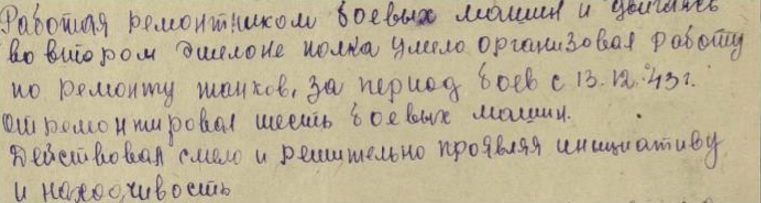 Работая ремонтником боевых машин и двигаясь
во втором эшелоне полка умело организовал работу
по ремонту танков, за период боев с 13.12.43г.
отремонтировал шесть боевых машин.
Действовал смело и решительно проявляя инициативу
и находчивость